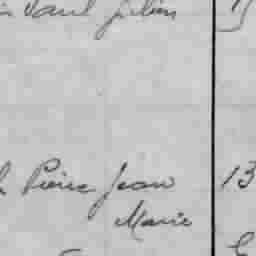 Paul Julien
Pierre Jean 13
Marie